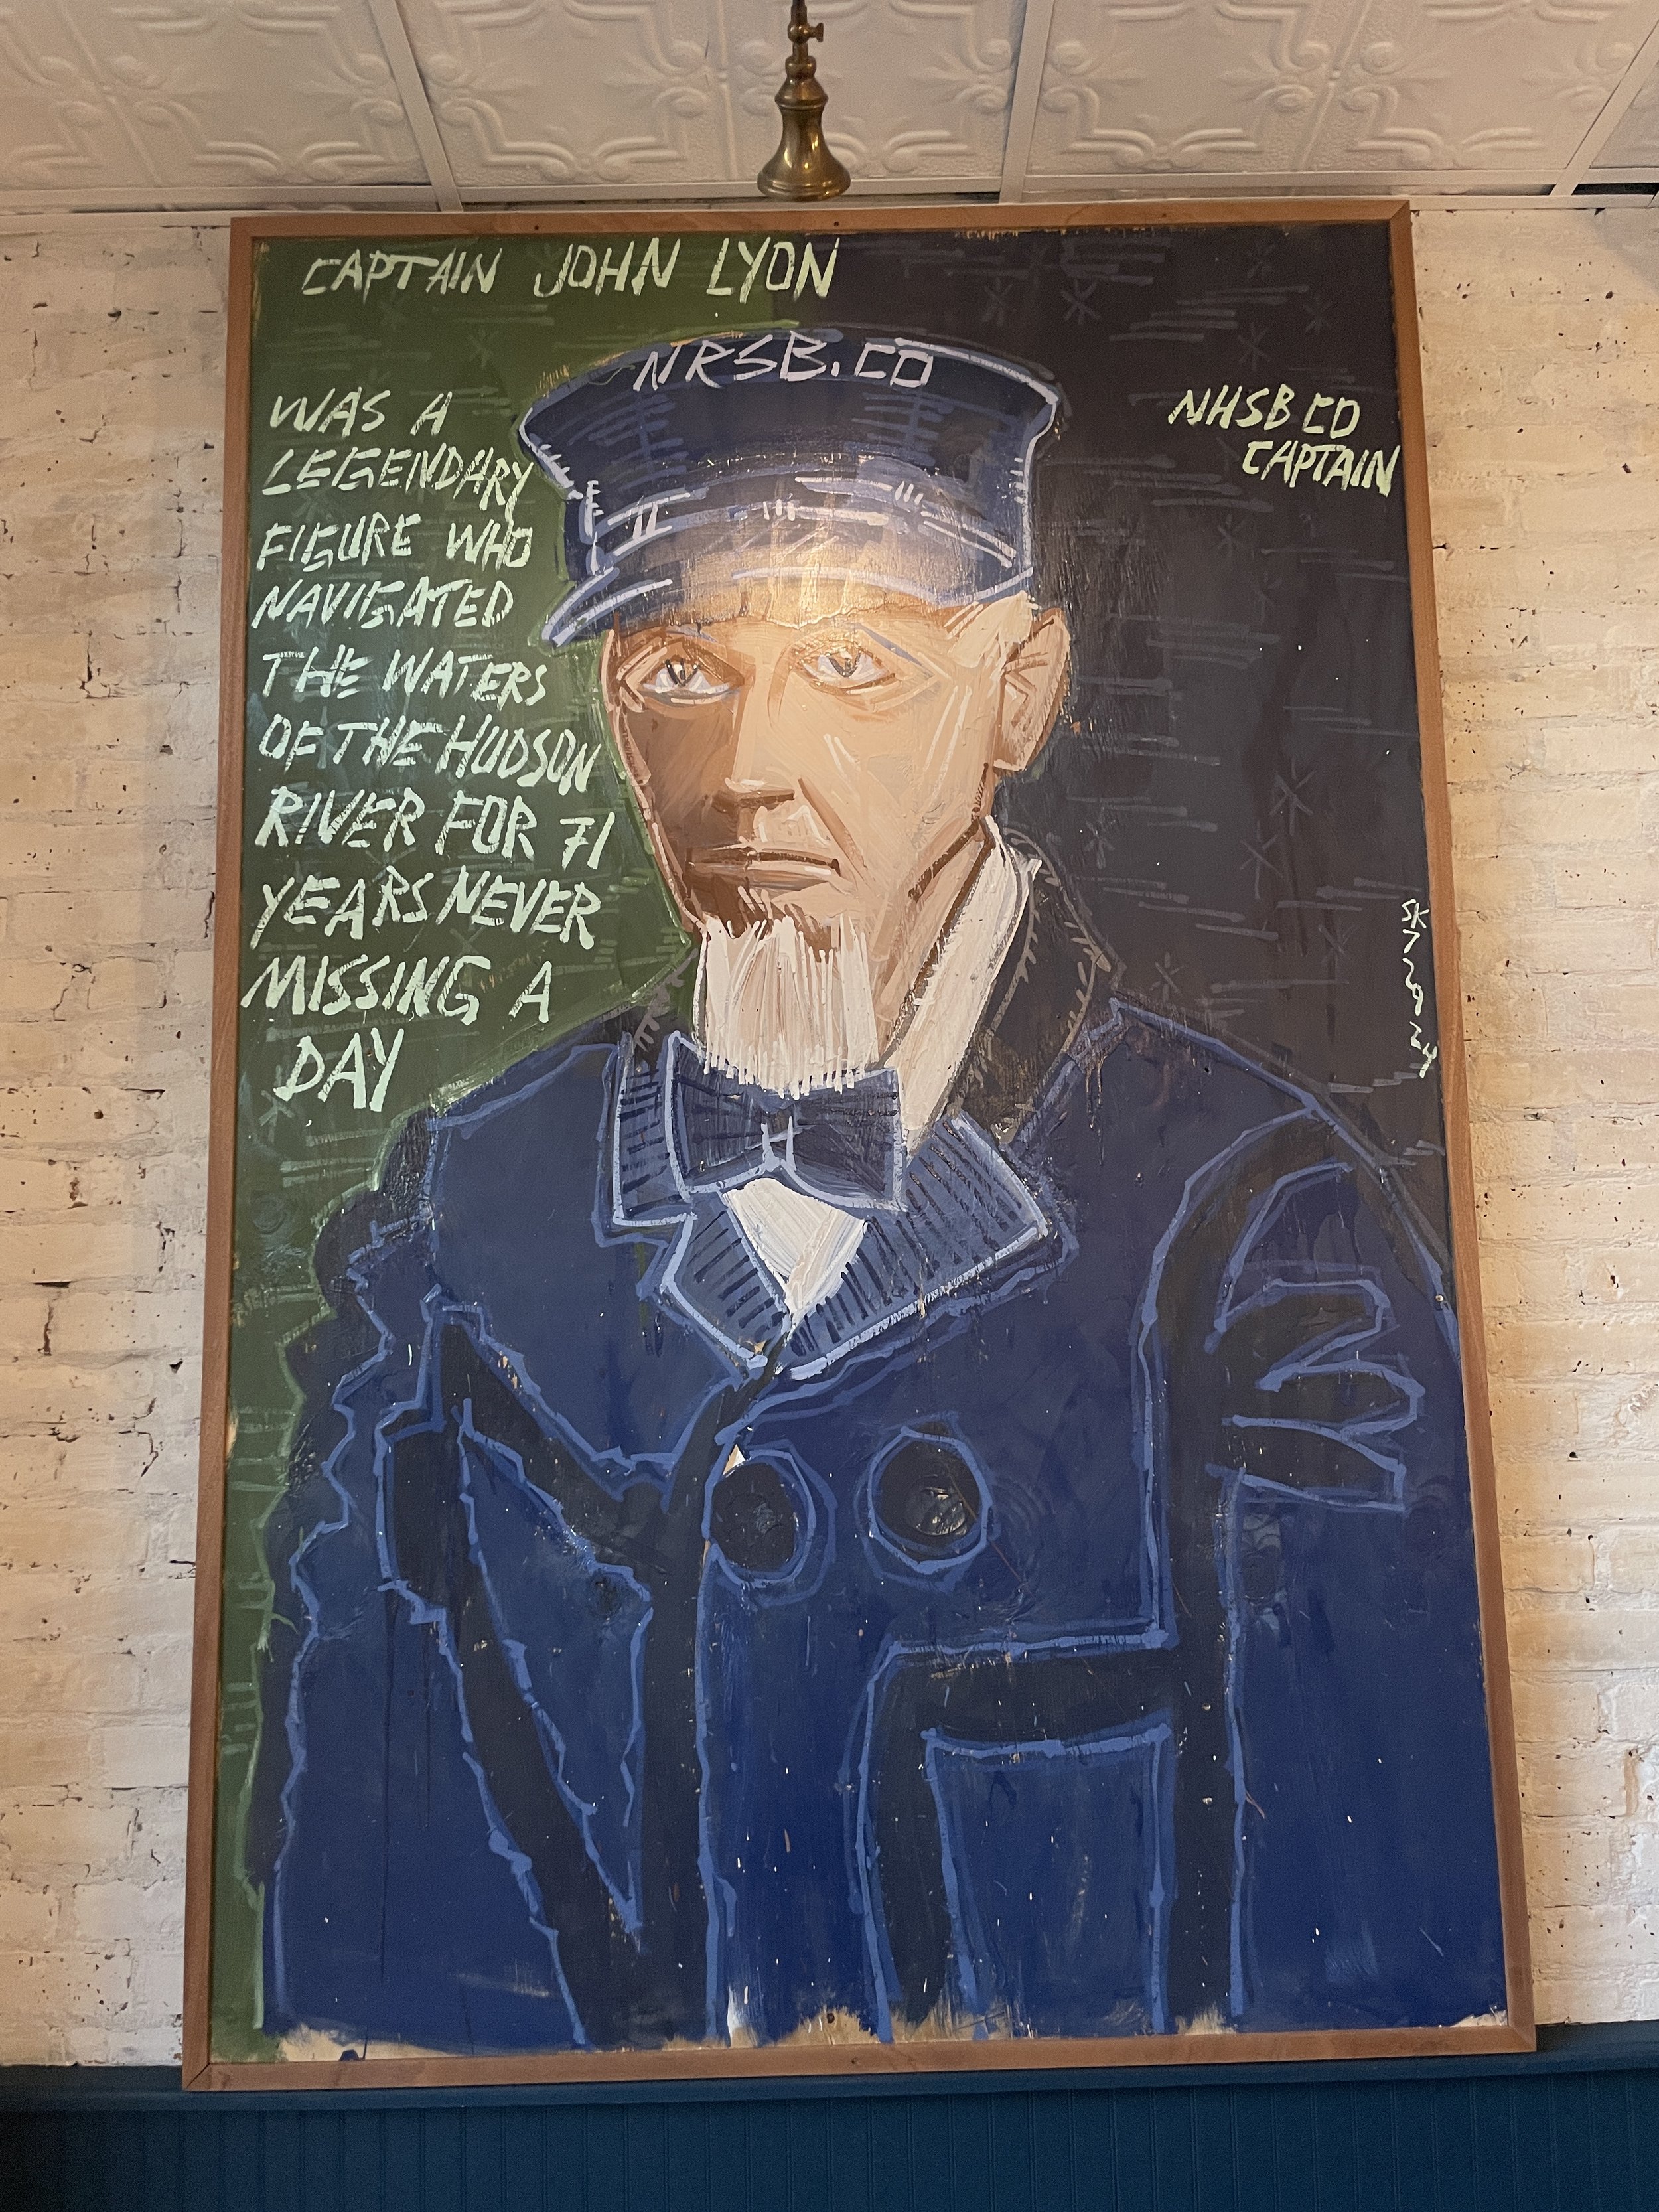 CAPTAIN JOHN LYON
NRSB.CO
WAS A
LEGENDARY
FIGURE WHO
NAVIGATED
THE WATERS
OF THE HUDSON
RIVER FOR 71
YEARS NEVER
MISSING A
DAY
NHSB CO
CAPTAIN